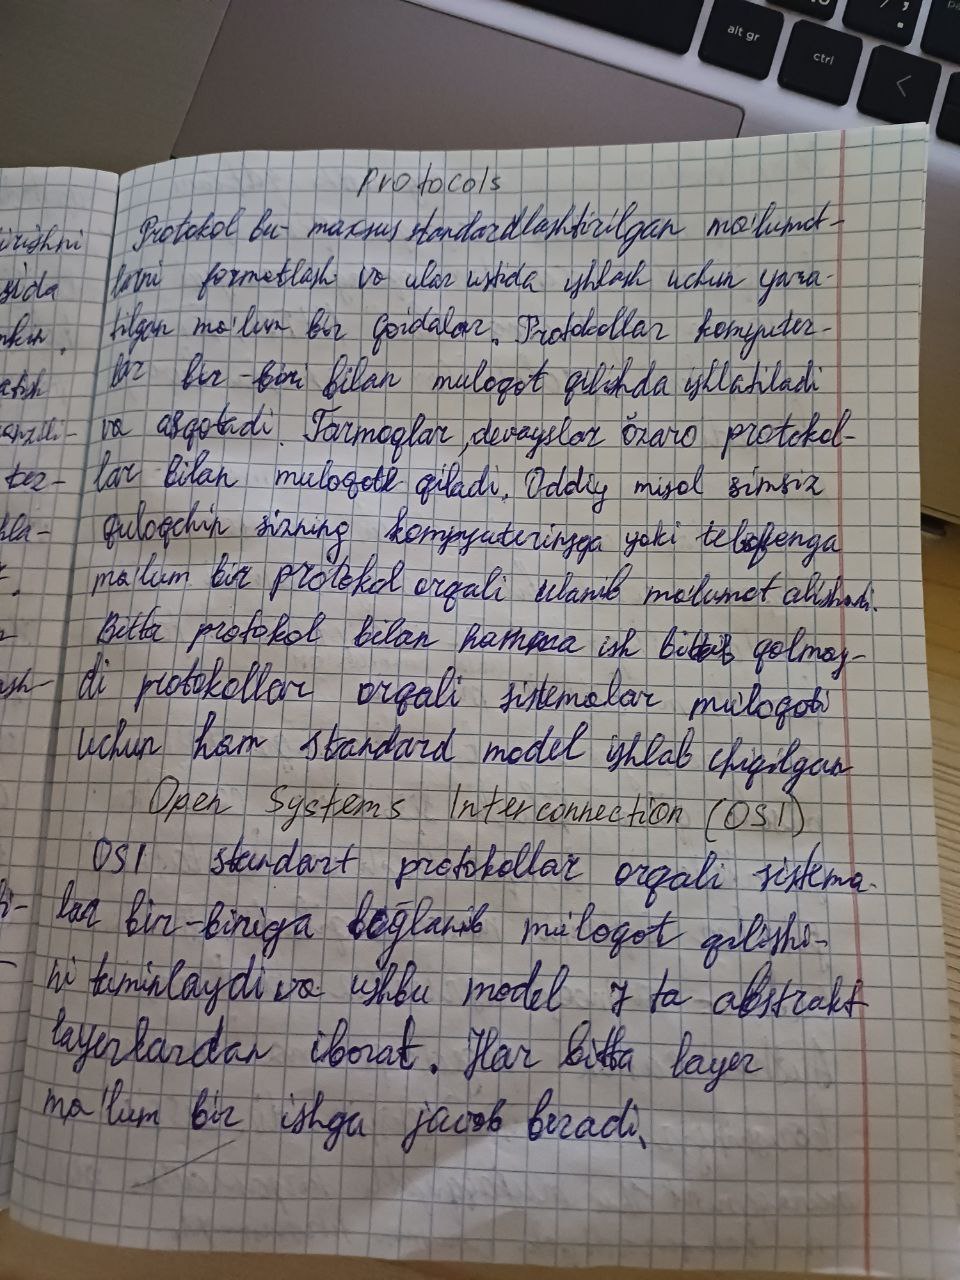 alt gr
ctrl
<
Protocols
Protokol bu- maxsus standardlashtirilgan ma'lumot-
larni formatlash va ular ustida ishlash uchun yara-
tilgan ma'lum bir qoidalar. Protokollar kompyuter-
lar bir-biri bilan muloqot qilishda ishlatiladi
va asqotadi. Tarmoqlar, devayslar özaro protokol-
lar bilan muloqot qiladi. Oddiy misol simsiz
quloqchin sizning kompyuteringga yoki telefonga
ma'lum bir protokol orqali ulanib ma'lumot alishadi.
Bitta protokol bilan hamma ish bitib qolmay-
di protokollar orqali sistemalar muloqoti
uchun ham standard model ishlab chiqilgan
Open Systems Interconnection (OSI)
OSI standart protokollar orqali sistema-
lar bir-biriga boğlanib muloqot qilishi-
ni taminlaydi va ushbu model 7 ta abstrakt
layerlardan iborat. Har bitta layer
ma'lum bir ishga javob beradi.